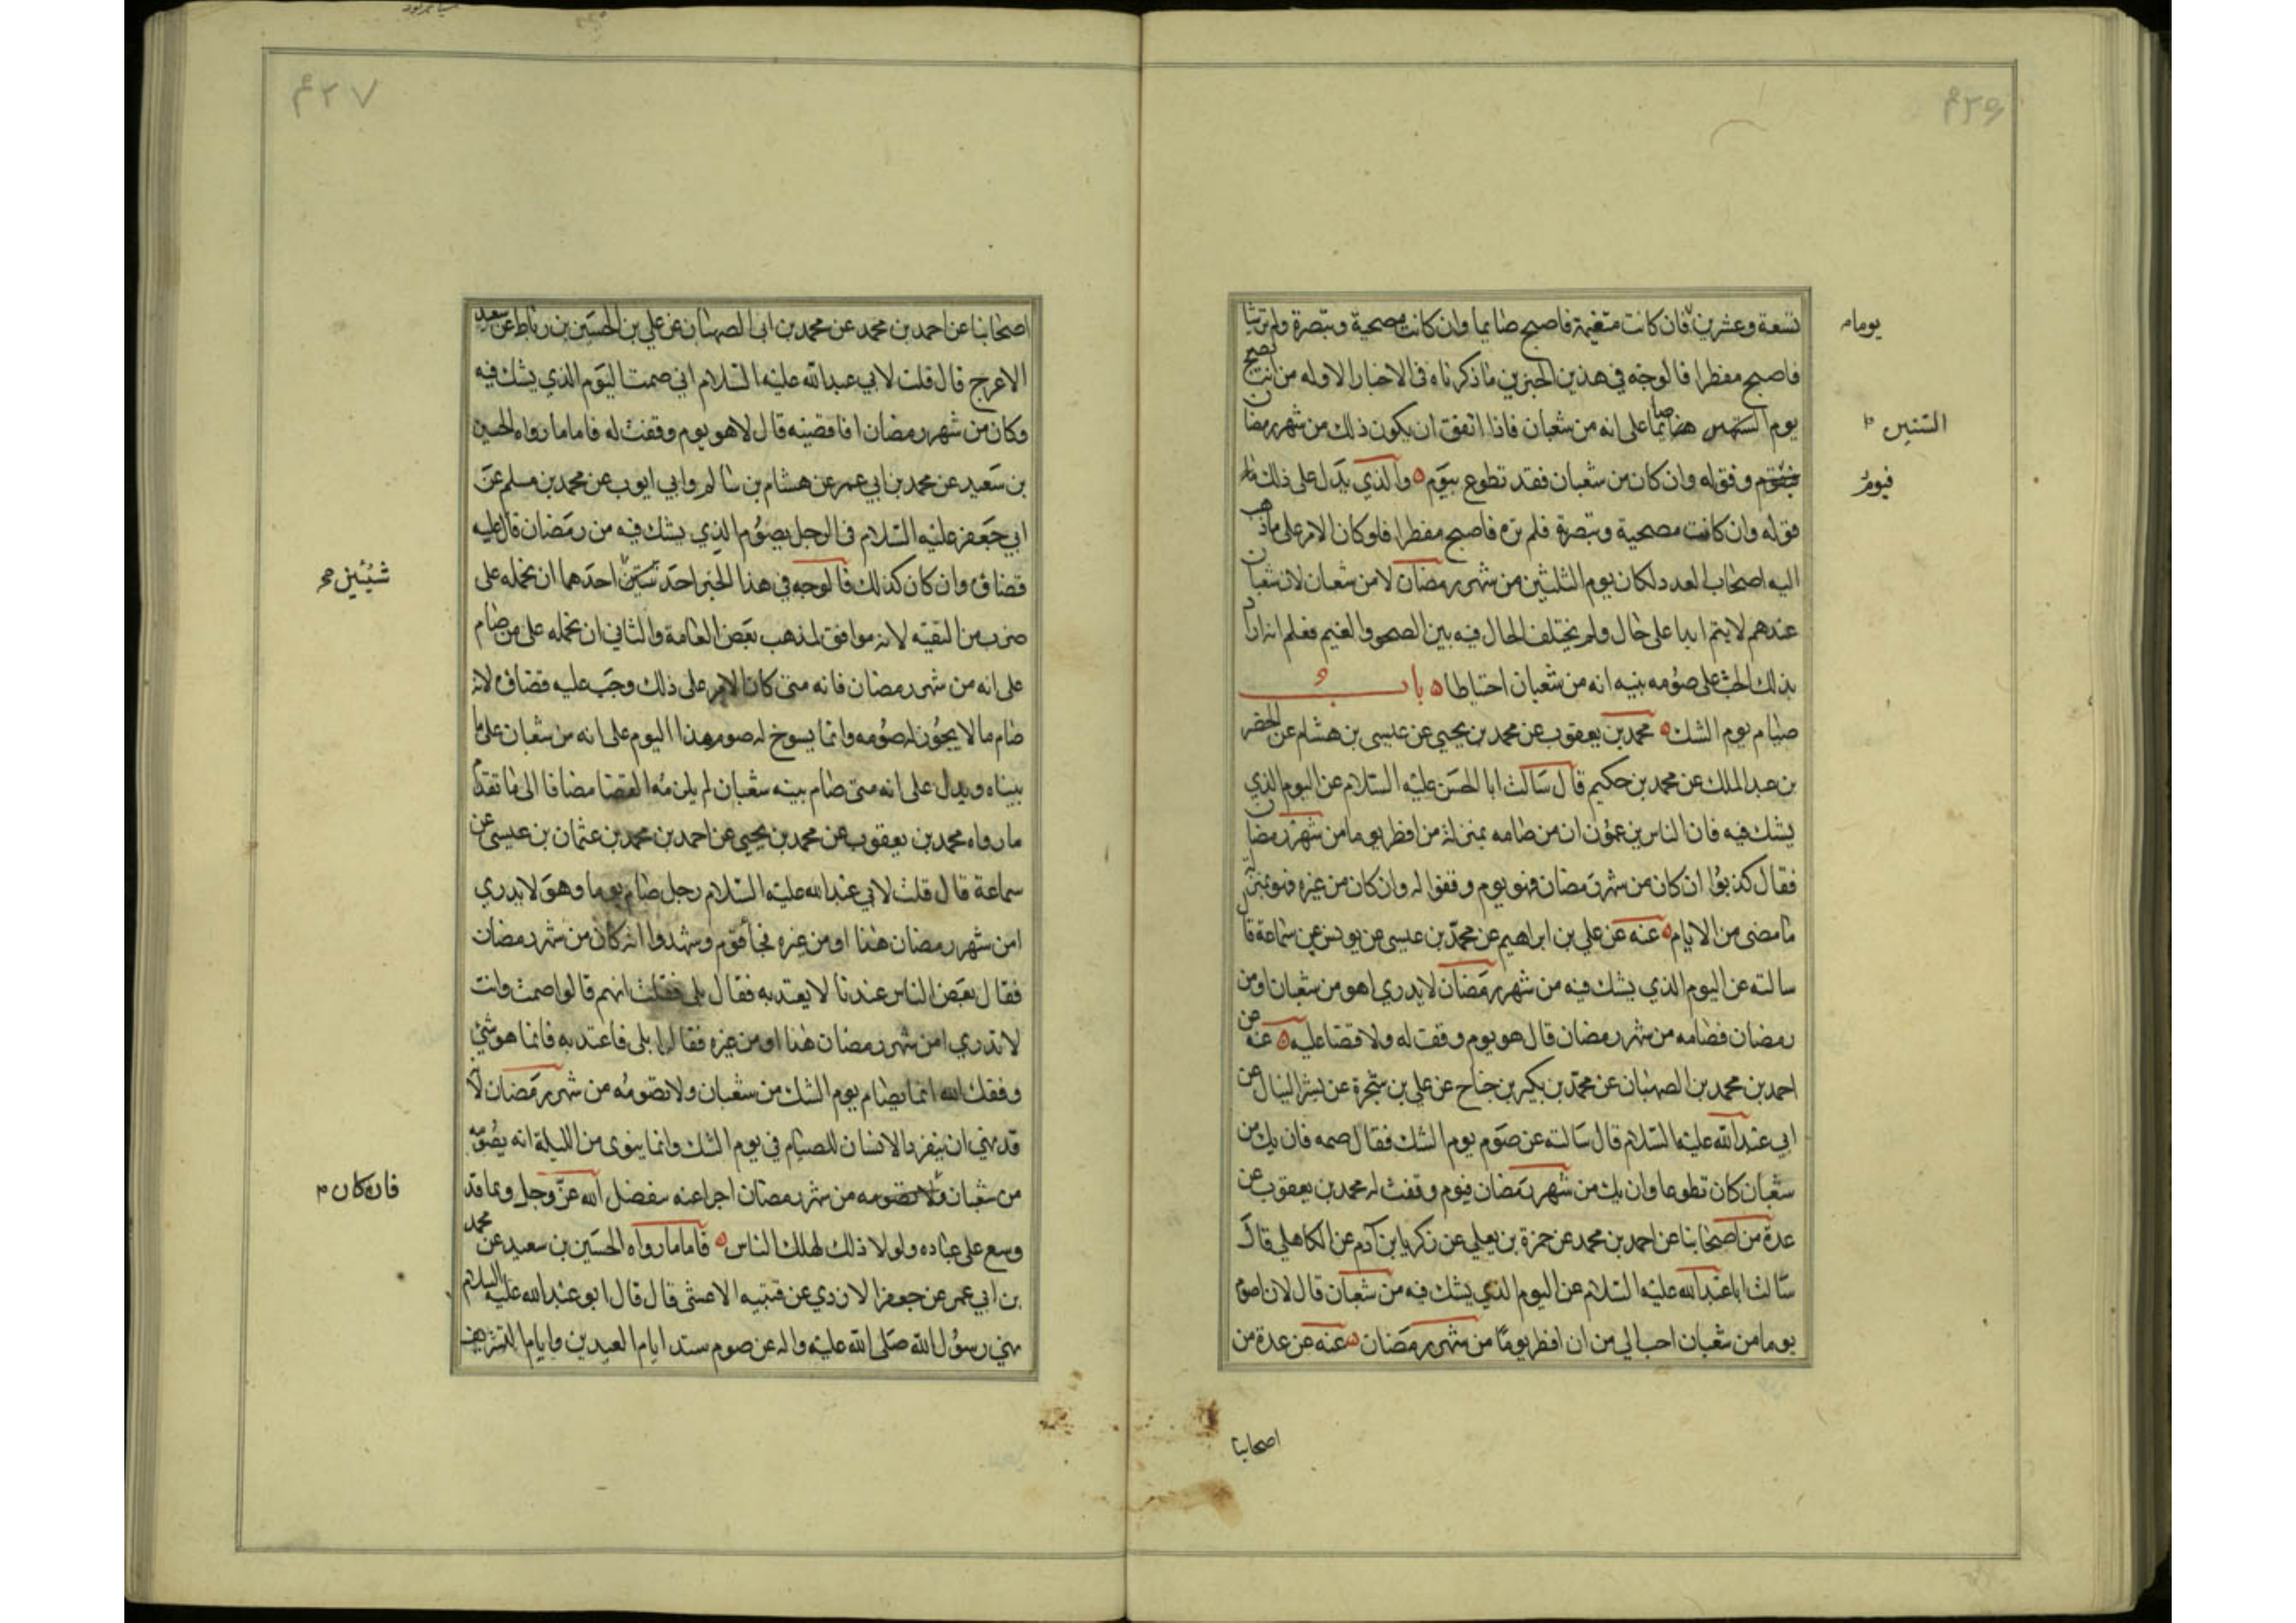 ٤٣٦
تسعة وعشرين فان كانت متغيمة فاصبح صايما وان كانت مصحية وتبصرة ولم تر شيا
يوما م
فاصبح مفطرا فالوجه في هذين الخبرين ما ذكرناه في الاخبار الاوله من انه يصبح
يوم صائما على انه من شعبان فاذا اتفق ان يكون ذلك من شهر رمضان
الثلثين
وفق له وان كان من شعبان فقد تطوع بيوم والذي يدل على ذلك
فيوم
قوله وان كانت مصحية وتبصرة فلم تره فاصبح مفطرا فلو كان الامر على ما ذهب
اليه اصحاب العدد لكان يوم الثلثين من شهر رمضان لا من شعبان لان شعبان
عندهم لا يتم ابدا على حال ولم يختلف الحال فيه بين الصحو والغيم فعلم انه اراد
بذلك الحث على صومه بنيه انه من شعبان احتياطا باب
صيام يوم الشك محمد بن يعقوب عن محمد بن يحيى عن عيسى بن هشام عن الخضر
بن عبد الملك عن محمد بن حكيم قال سالت ابا الحسن عليه السلام عن اليوم الذي
يشك فيه فان الناس يزعمون ان من صامه بمنزلة من افطر يوما من شهر رمضان
فقال كذبوا ان كان من شهر رمضان فهو يوم وفقوا له وان كان من غيره فهو بمنزلة
ما مضى من الايام عنه عن علي بن ابراهيم عن محمد بن عيسى عن يونس عن سماعة قال
سالته عن اليوم الذي يشك فيه من شهر رمضان لا يدري اهو من شعبان او من
رمضان فصامه من شهر رمضان قال هو يوم وفقت له ولا قضا عليه عنه عن
احمد بن محمد بن الصهبان عن محمد بن بكير بن جناح عن علي بن شجرة عن بشر النبال عن
ابي عبد الله عليه السلام قال سالته عن صوم يوم الشك فقال صمه فان يك من
شعبان كان تطوعا وان يك من شهر رمضان فيوم وفقت له محمد بن يعقوب عن
عدة من اصحابنا عن احمد بن محمد عن حمزة بن يعلي عن زكريا ابن آدم عن الكاهلي قال
سالت ابا عبد الله عليه السلام عن اليوم الذي يشك فيه من شعبان قال لان اصوم
يوما من شعبان احب الي من ان افطر يوما من شهر رمضان عنه عن عدة من
اصحابنا
٤٣٧
اصحابنا عن احمد بن محمد عن محمد بن ابى الصهبان عن علي بن الحسين بن رباط عن سعيد
الاعرج قال قلت لابي عبد الله عليه السلام اني صمت اليوم الذي يشك فيه
وكان من شهر رمضان افاقضيه قال لا هو يوم وفقت له فاما ما رواه الحسين
بن سعيد عن محمد بن ابي عمير عن هشام بن سالم وابي ايوب عن محمد بن مسلم عن
ابي جعفر عليه السلام في الرجل يصوم الذي يشك فيه من رمضان قال عليه
قضاؤه وان كان كذلك فالوجه في هذا الخبر احد احدهما ان نحمله على
شيئين
ضرب من التقيه لانه موافق لمذهب بعض العامة والثاني ان نحمله على من صام
على انه من شهر رمضان فانه متى كان الامر على ذلك وجب عليه قضاؤه لانه
صام ما لا يجوز له صومه وانما يسوغ له صوم هذا اليوم على انه من شعبان على ما
بيناه ويدل على انه متى صام بنيه شعبان لم يلزمه القضا مضافا الى ما تقدم
ما رواه محمد بن يعقوب عن محمد بن يحيى عن احمد بن محمد بن عثمان بن عيسى عن
سماعة قال قلت لابي عبد الله عليه السلام رجل صام يوما وهو لا يدري
امن شهر رمضان هذا او من غيره فجا قوم وشهدوا انه كان من شهر رمضان
فقال بعض الناس عندنا لا يعتد به فقال بلى فقلت انهم قالوا صمت وانت
لا تدري امن شهر رمضان هذا او من غيره فقال لي بلى فاعتد به فانما هو شئ
وفقك الله انما يصام يوم الشك من شعبان ولا تصومه من شهر رمضان لانه
قد نهي ان ينفرد الانسان للصيام في يوم الشك وانما ينوى من الليلة انه يصومه
من شعبان من شهر رمضان اجزا عنه بتفضل الله عز وجل وبما قد
فان كان م
وسع على عباده ولولا ذلك لهلك الناس فاما ما رواه الحسين بن سعيد عن محمد
بن ابي عمير عن جعفر الازدي عن قتيبه الاعشى قال قال ابو عبد الله عليه السلام
نهي رسول الله صلى الله عليه واله عن صوم ستة ايام العيدين وايام التشريق